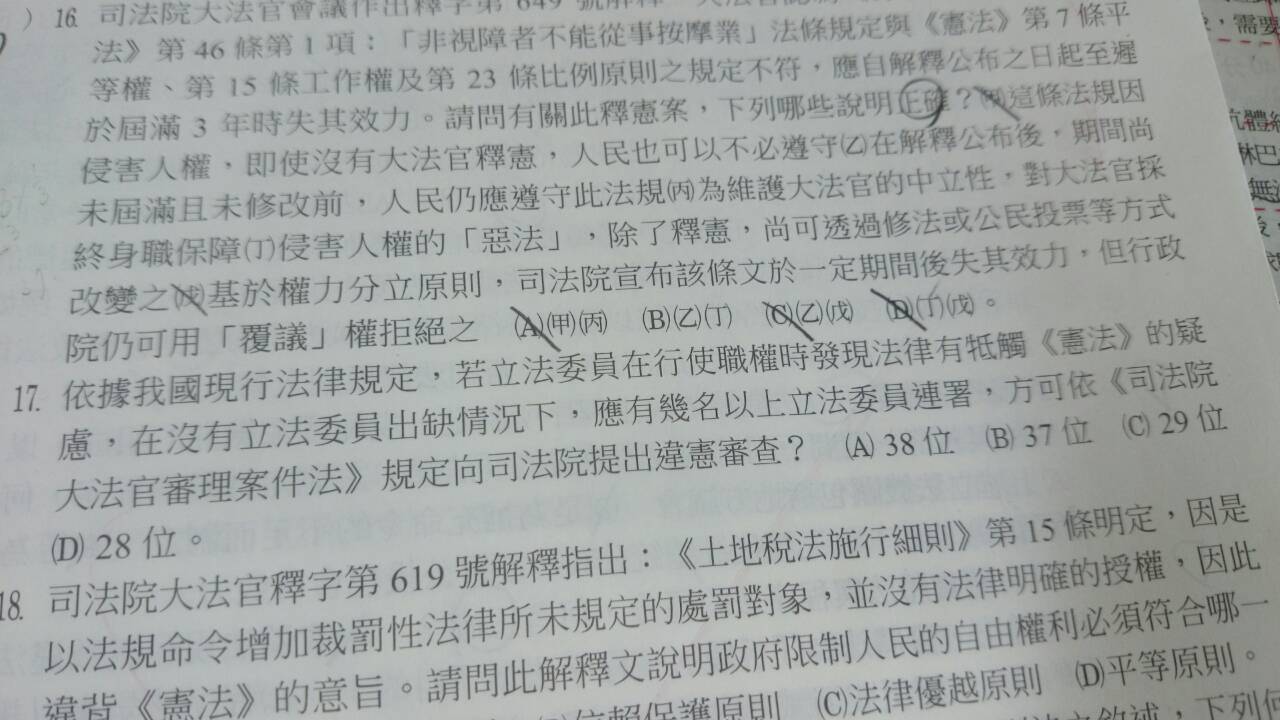 16. 司法院大法官會議作出釋字第 649 號解釋
法》第 46 條第 1 項：「非視障者不能從事按摩業」法條規定與《憲法》第 7 條平
等權、第 15 條工作權及第 23 條比例原則之規定不符，應自解釋公布之日起至遲
於屆滿 3 年時失其效力。請問有關此釋憲案，下列哪些說明正確？(甲)這條法規因
侵害人權，即使沒有大法官釋憲，人民也可以不必遵守(乙)在解釋公布後，期間尚
未屆滿且未修改前，人民仍應遵守此法規(丙)為維護大法官的中立性，對大法官採
終身職保障(丁)侵害人權的「惡法」，除了釋憲，尚可透過修法或公民投票等方式
改變之(戊)基於權力分立原則，司法院宣布該條文於一定期間後失其效力，但行政
院仍可用「覆議」權拒絕之 (A)(甲)(丙) (B)(乙)(丁) (C)(乙)(戊) (D)(丁)(戊)。
17. 依據我國現行法律規定，若立法委員在行使職權時發現法律有牴觸《憲法》的疑
慮，在沒有立法委員出缺情況下，應有幾名以上立法委員連署，方可依《司法院
大法官審理案件法》規定向司法院提出違憲審查？ (A) 38 位 (B) 37 位 (C) 29 位
(D) 28 位。
18. 司法院大法官釋字第 619 號解釋指出：《土地稅法施行細則》第 15 條明定，因是
以法規命令增加裁罰性法律所未規定的處罰對象，並沒有法律明確的授權，因此
違背《憲法》的意旨。請問此解釋文說明政府限制人民的自由權利必須符合哪一
信賴保護原則 (C)法律優越原則 (D)平等原則。
敘述，下列何
，需要
抗體
淋巴